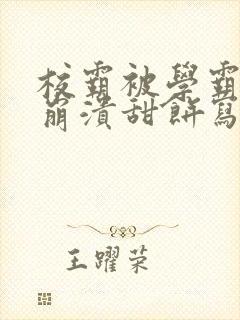 校霸被學霸
崩潰甜餅寫
王躍荣